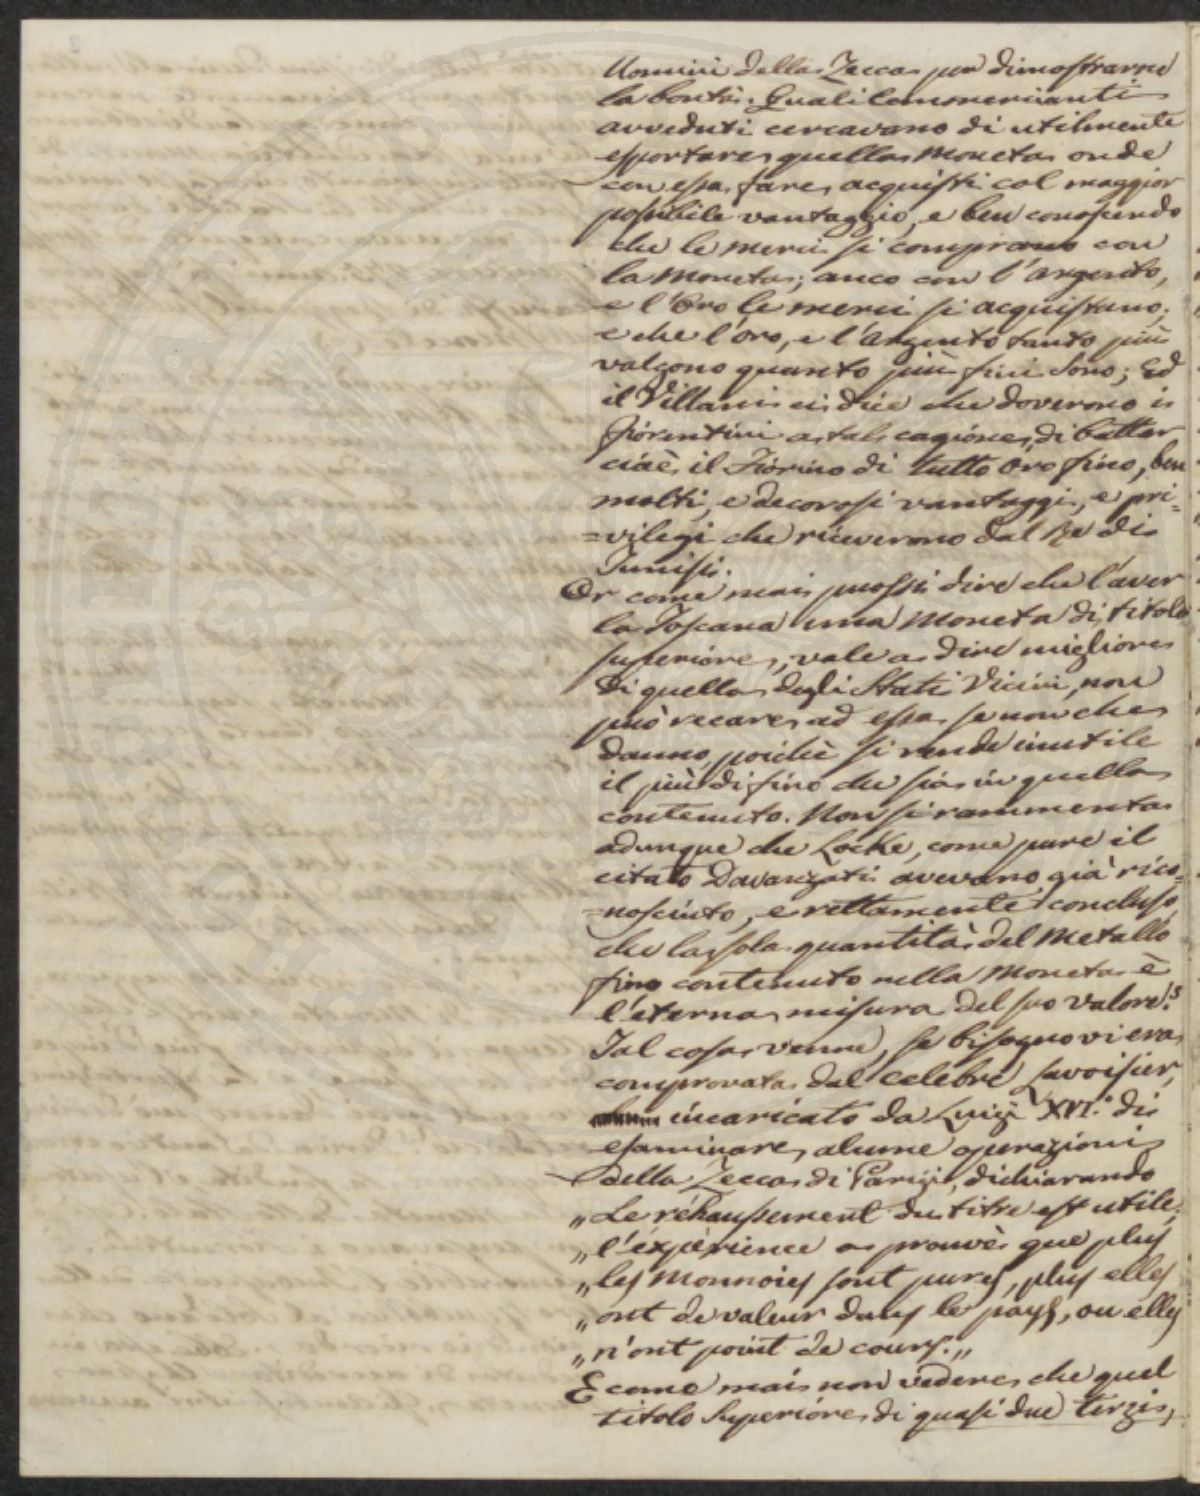 Uomini della Zecca per dimostrarne
la bontà. Quali Commercianti
avveduti cercavano di utilmente
esportare quella Moneta onde
con essa fare acquisti col maggior
possibile vantaggio, e ben conoscendo
che le merci si comprano con
la Moneta; anco con l'argento,
e l'Oro le merci si acquistano;
e che l'oro, e l'argento tanto più
valgono quanto più fini sono; Ed
il Villani ci dice che doverono i
Fiorentini a tale cagione, di batter
cioè, il Fiorino di tutto Oro fino, ben
molti, e decorosi vantaggi, e pri=
=vilegi che riceverono dal Re di
Tunisi.
Or come mai puossi dire che l'aver
la Toscana una Moneta di titolo
superiore, vale a dire migliore
di quella degli Stati Vicini, non
può recare ad essa se non che
danno, poichè si rende inutile
il più di fino che sia in quella
contenuto. Non si rammenta
adunque che Locke, come pure il
citato Davanzati avevano già rico=
=nosciuto, e rettamente concluso
che la sola quantità del Metallo
fino contenuto nella Moneta è
l'eterna misura del suo valore.
Tal cosa venne, se bisogno vi era,
comprovata dal celebre Lavoisier,
incaricato da Luigi XVI.° di
esaminare alcune operazioni
della Zecca di Parigi, dichiarando
„Le réhaussement du titre est utile;
„l'expérience a prouvè que plus
„les Monnoies sont pures, plus elles
„ont de valeur dans le pays, ou elles
„n'ont point de cours.„
E come mai non vedere che quel
titolo superiore di quasi due terzi,